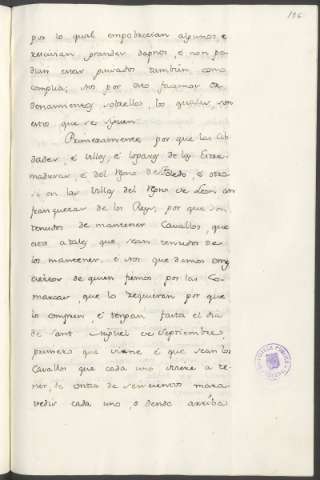 106
por lo qual empobrecian algunos, e
rescivian grandes dapnos, e non po-
dian estar guisados tambien como
complia; Nos por esto facemos or-
denamientos sobrello, los quales, son
estos que se siguen
Primeramente por que las Cib-
dades, e villas, e logares de las Estre-
maduras, e del Regno de Toledo, e otro
si en las villas del Regno de Leon son
franqueza de los Reyes, por que son
tenudos de mantener Cavallos, que
estos atales que sean tenudos de
los mantener, e Nos que demos omes
de quien fiemos por las Co-
marcas, que lo requieran por que
lo compren, e tengan fasta el dia
de Sant Miguel de Septiembre,
primero que viene e que sean los
Cavallos que cada uno oviere a te-
ner, de contia de seiscientos mara-
vedis cada uno, o dende arriba